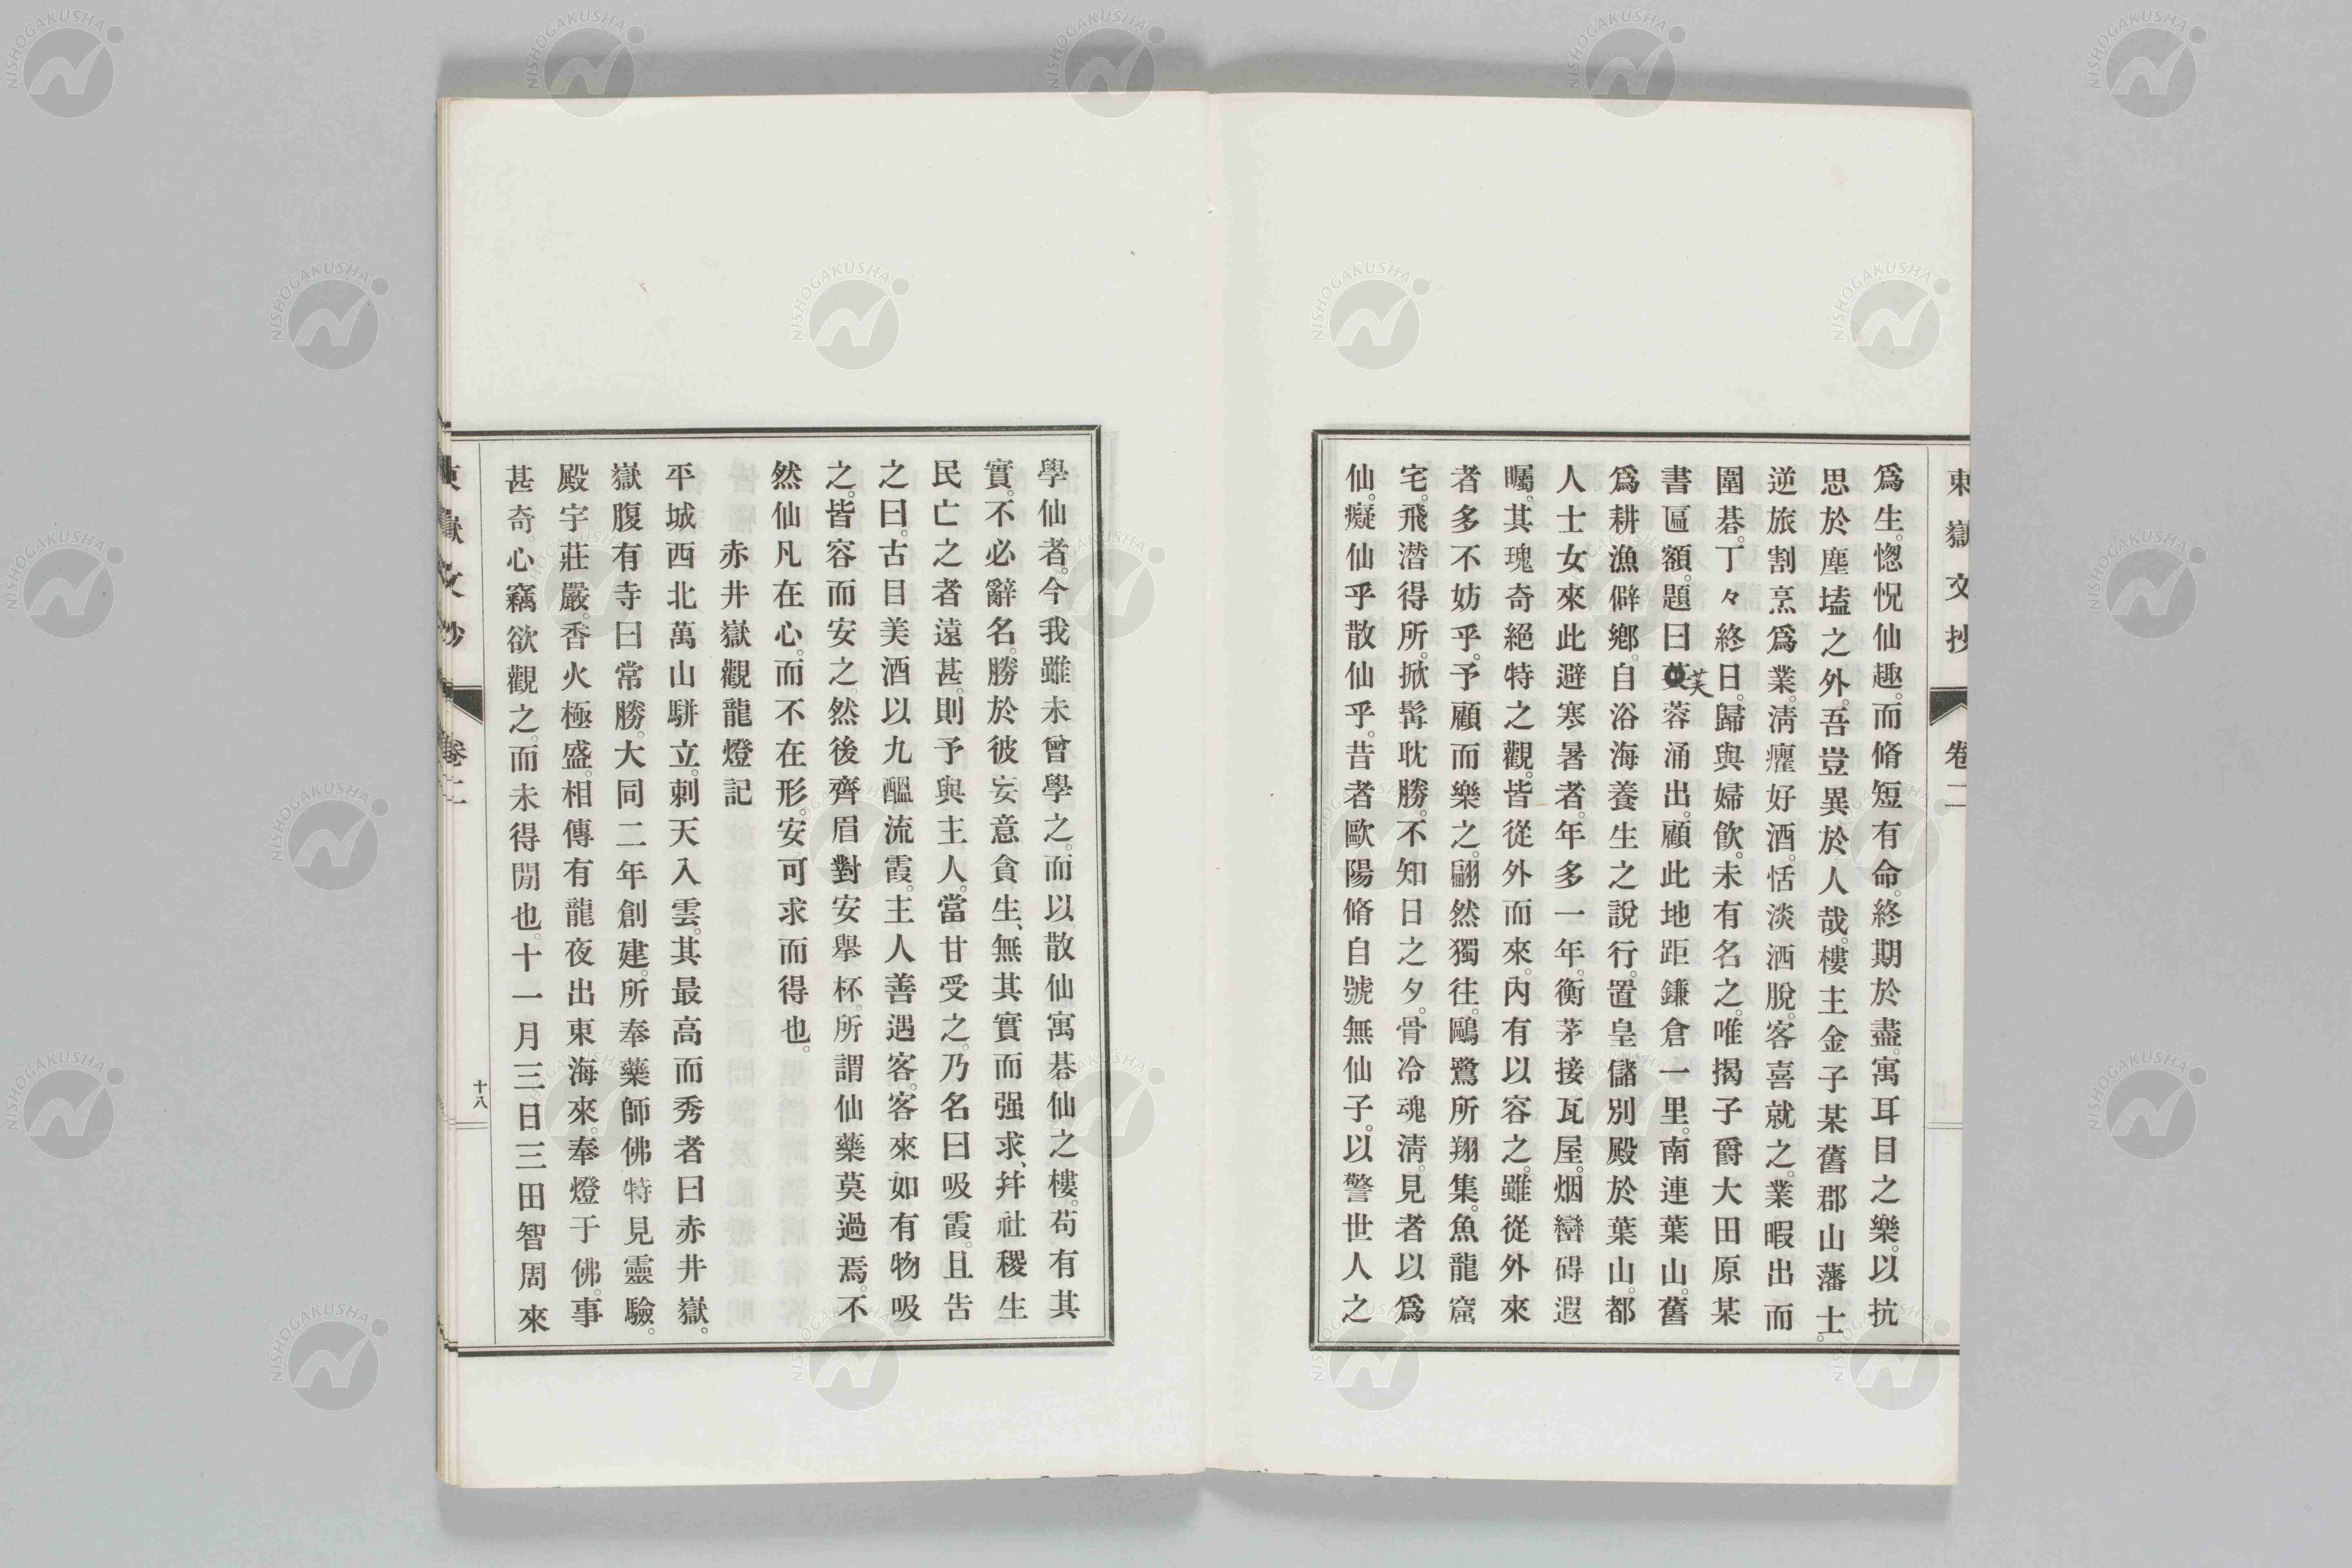 東嶽文抄 卷二
爲生。惚怳仙趣。而脩短有命。終期於盡。寓耳目之樂。以抗
思於塵壒之外。吾豈異於人哉。樓主金子某舊郡山藩士。
逆旅割烹爲業。淸癯好酒。恬淡洒脫。客喜就之。業暇出而
圍碁。丁々終日。歸與婦飮。未有名之。唯揭子爵大田原某
書匾額。題曰芙蓉涌出。顧此地距鎌倉一里。南連葉山。舊
爲耕漁僻鄕。自浴海養生之說行。置皇儲別殿於葉山。都
人士女來此避寒暑者。年多一年。衡茅接瓦屋。烟巒碍遐
矚。其瑰奇絕特之觀。皆從外而來。內有以容之。雖從外來
者多不妨乎。予顧而樂之。翩然獨往。鷗鷺所翔集。魚龍窟
宅。飛潛得所。掀髯耽勝。不知日之夕。骨冷魂淸。見者以爲
仙。癡仙乎散仙乎。昔者歐陽脩自號無仙子。以警世人之
學仙者。今我雖未曾學之。而以散仙寓碁。仙之樓。苟有其
實。不必辭名。勝於彼妄意貪生、無其實而强求、幷社稷生
民亡之者遠甚。則予與主人。當甘受之。乃名曰吸霞。且告
之曰。古目美酒以九醞流霞。主人善遇客。客來如有物吸
之。皆容而安之。然後齊眉對安擧杯。所謂仙藥莫過焉。不
然仙凡在心。而不在形。安可求而得也。
赤井嶽觀龍燈記
平城西北萬山駢立。刺天入雲。其最高而秀者曰赤井嶽。
嶽腹有寺曰常勝。大同二年創建。所奉藥師佛特見靈驗。
殿宇莊嚴。香火極盛。相傳有龍夜出東海來。奉燈于佛。事
甚奇。心竊欲觀之。而未得閒也。十一月三日三田智周來
東嶽文抄 卷二 十八
NISHOGAKUSHA